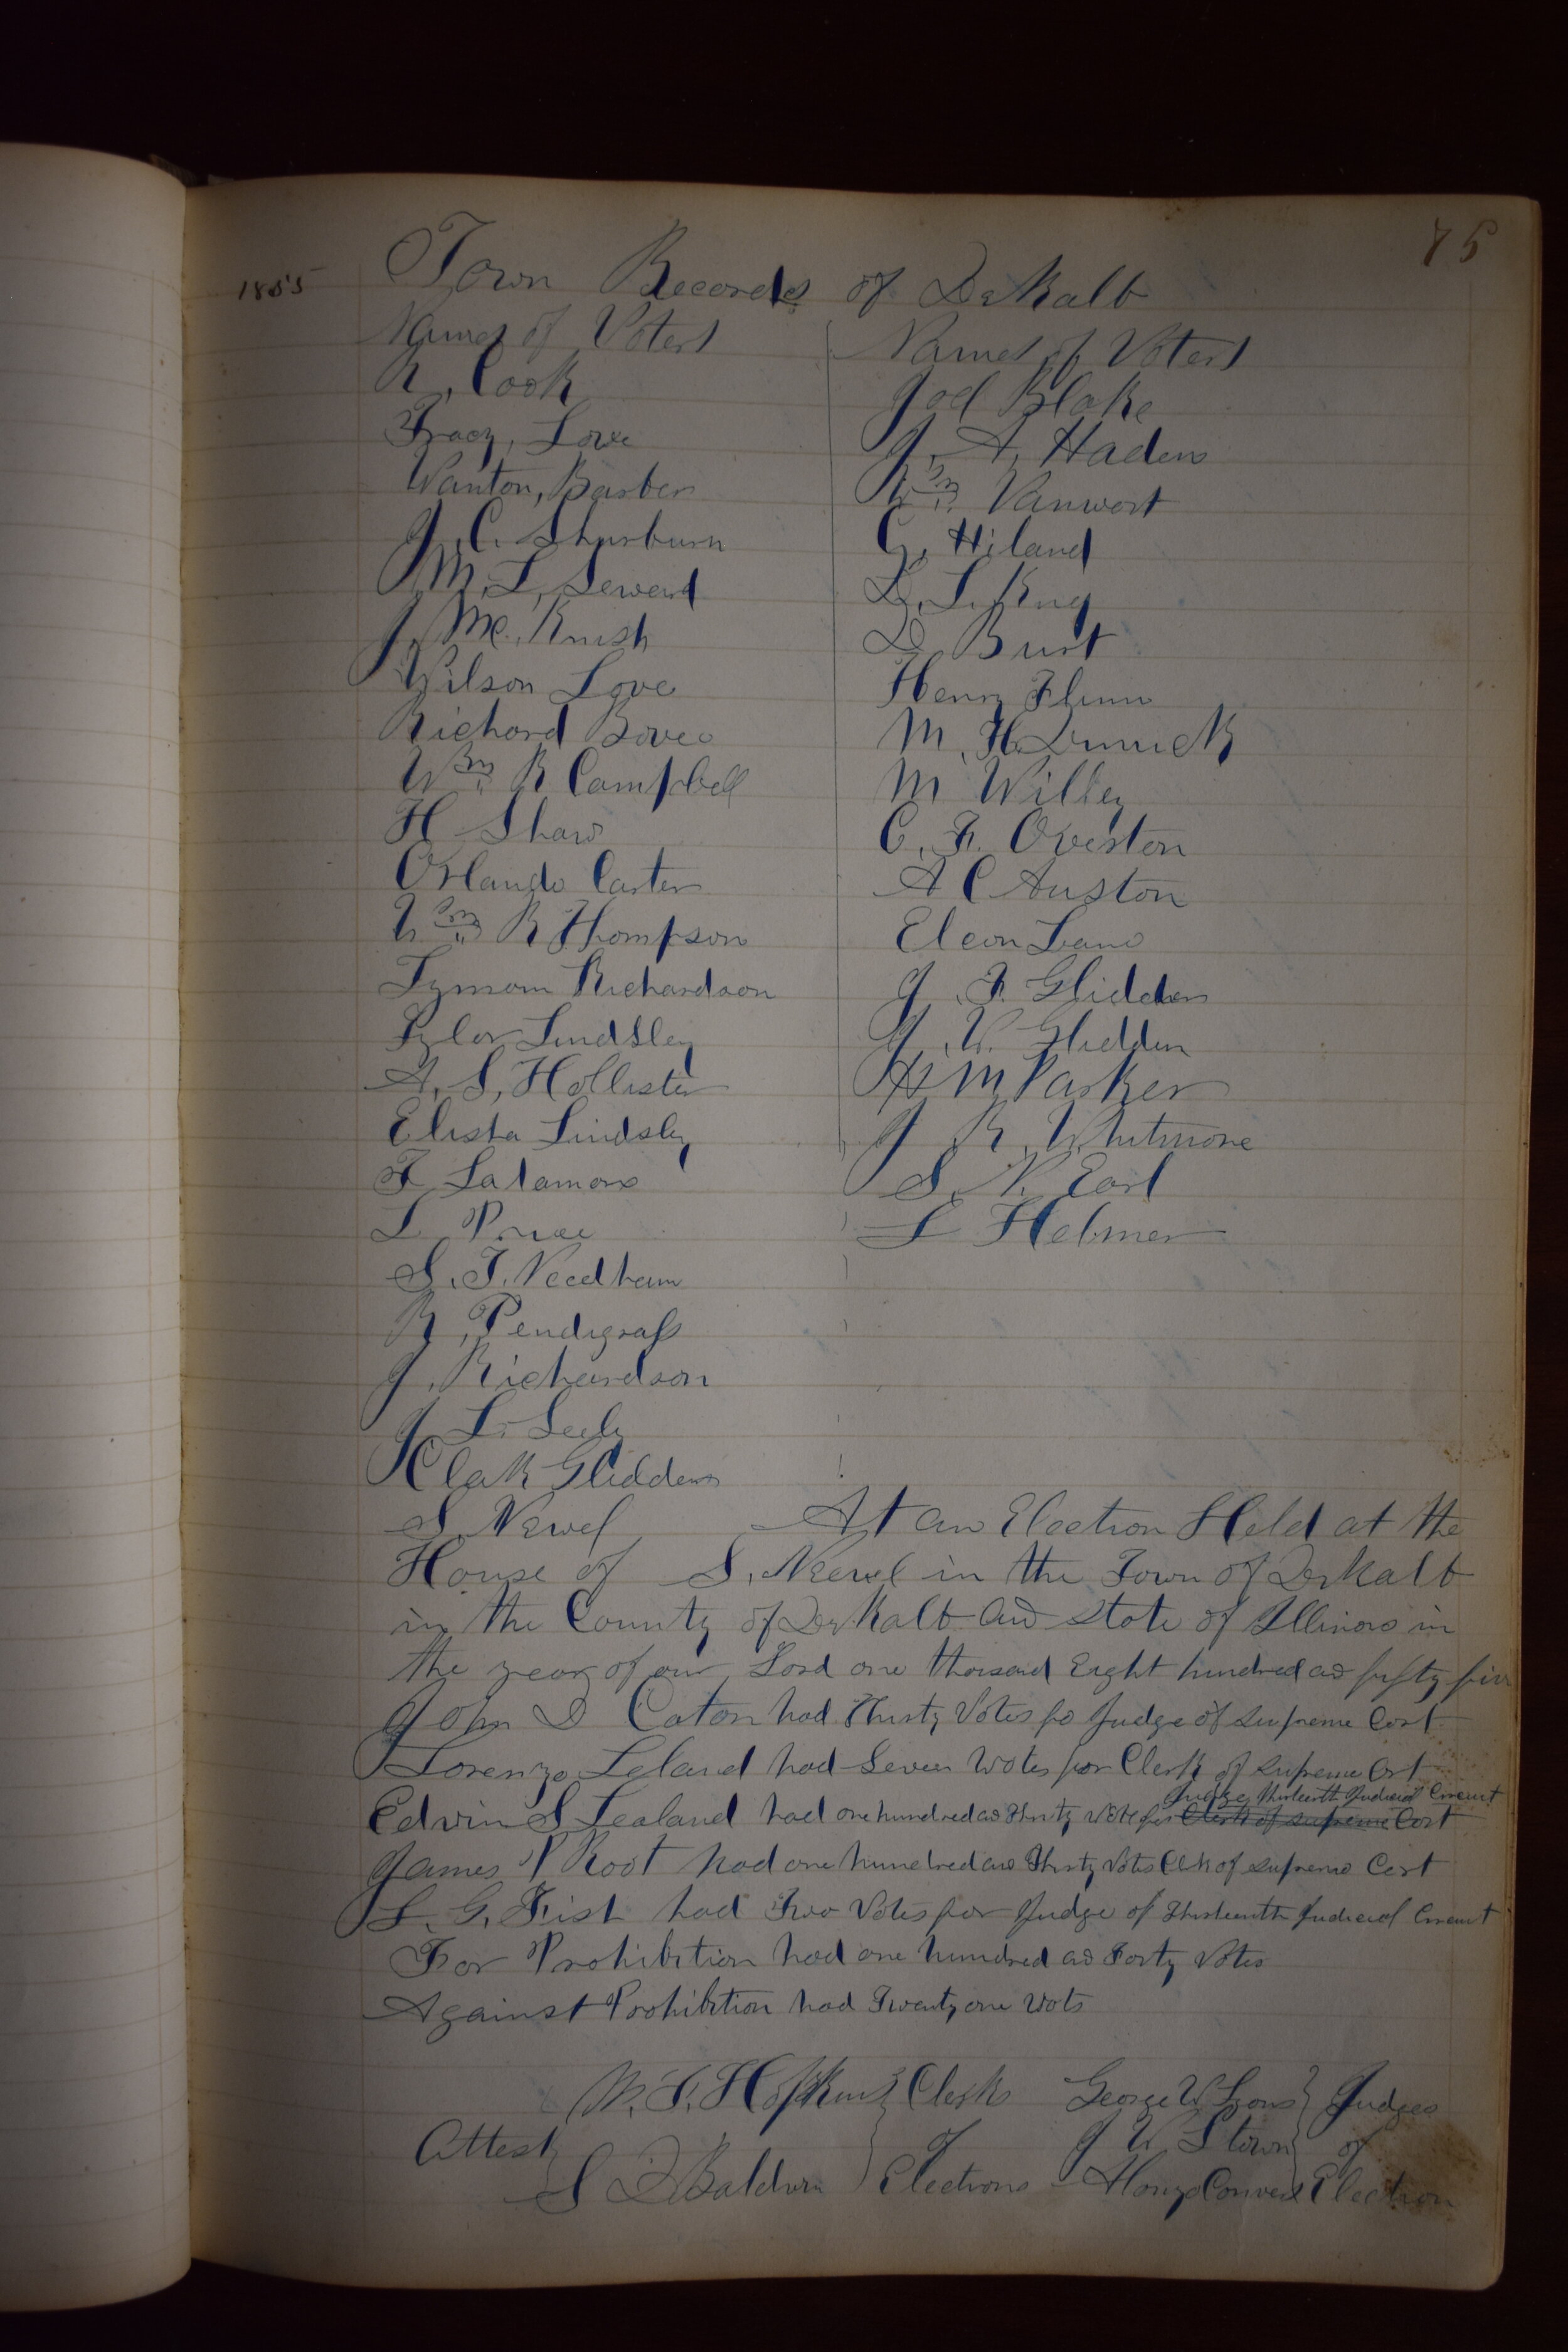 75
1855
Town Records of DeKalb
Names of Voters
R, Cook
Tracy, Love
Wanton, Barber
J, C. Shurburn
M, L, Seward
J, Mc. Knish
Wilson Love
Richard Bovee
Wm R Campbell
H Shaw
Orlando Carter
Wm R Thompson
Lymom Richardson
Tylor Lindsley
A, S, Hollister
Elisha Lindsley
F Latamore
L
S. T. Needham
R, Pendigrass
J. Richardson
J L. Seely
Clak Glidden
S. Newel
Names of Voters
Joel Blake
J, A, Haden
Wm Vanwort
G, Hiland
L. King
D Burt
Henry Flinn
M, H.
M Willey
C, F. Overton
A C Auston
Eleon Lane
J. F. Glidden
J. W. Glidden
H M Parker
J R. Whitmore
S. N. Earl
L Helmer
At an Election Held at the
House of S, Newel in the Town of DeKalb
in the County of DeKalb and State of Illinois in
the year of our Lord one thousand Eight hundred ad fifty five
John D Caton had Thirty Votes fo Judge of Supreme Cort
Lorenzo Leland had Seven Votes for Clerk of Supreme Cort
Judge Thirteenth Judicial Circuit
Edwin S Lealand had one hundred ad Thirty Vote for Clerk of Supreme Cort
James P Root had one hundred and Thirty Votes Clk of Supreme Cort
L. G. Fist had Two Votes for Judge of Thirteenth Judicial Circuit
For Prohibition had one hundred ad Forty Votes
Against Prohibition had Twenty one Vots
W. F. Hopkins Clerk George W Lyons Judges
Attest of J W Stown of
S Baldwin Elections Alonzo Convers Election